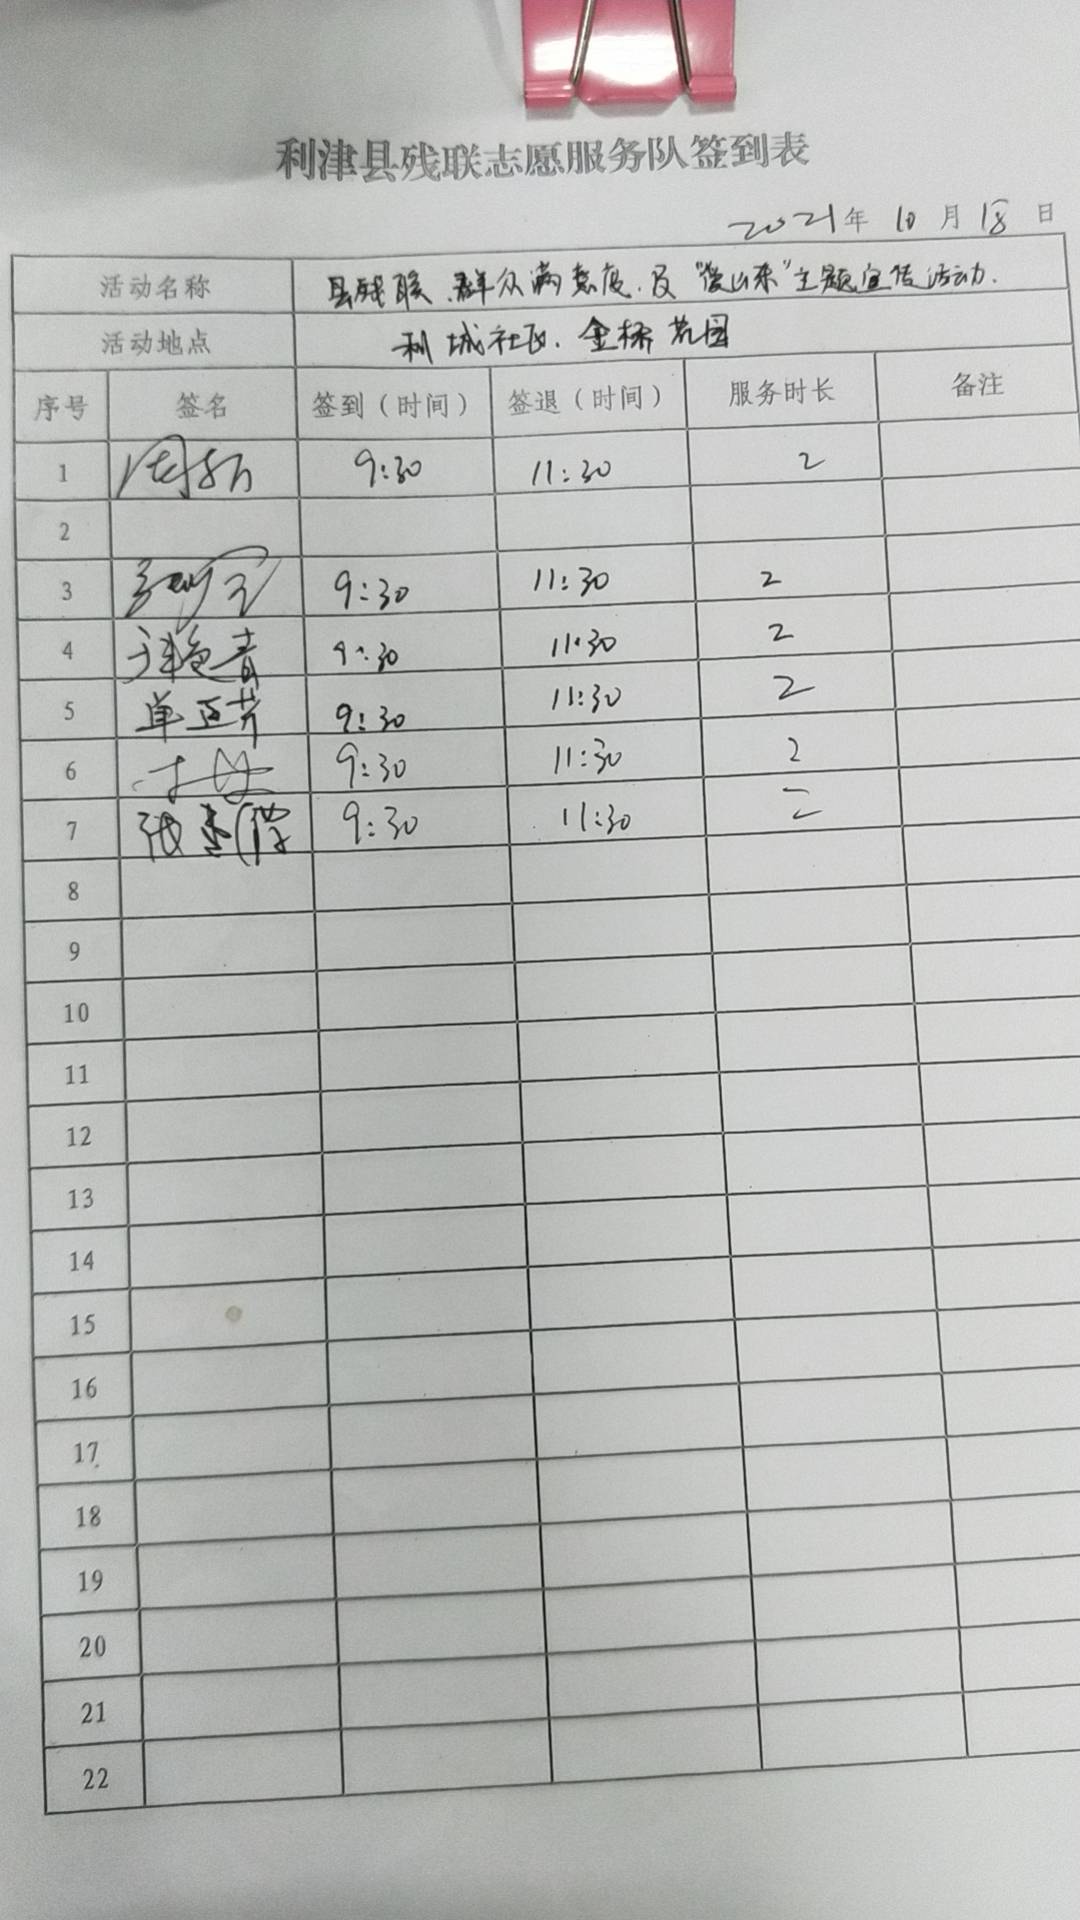 利津县残联志愿服务队签到表
2021年 10 月 18 日
活动名称 县残联、群众满意度、及"爱山东"主题宣传活动.
活动地点 利城社区、金桥花园
序号 签名 签到（时间） 签退（时间） 服务时长 备注
1 9:30 11:30 2
2
3 9:30 11:30 2
4 9:30 11:30 2
5 单 芳 9:30 11:30 2
6 9:30 11:30 2
7 张 9:30 11:30 2
8
9
10
11
12
13
14
15
16
17
18
19
20
21
22